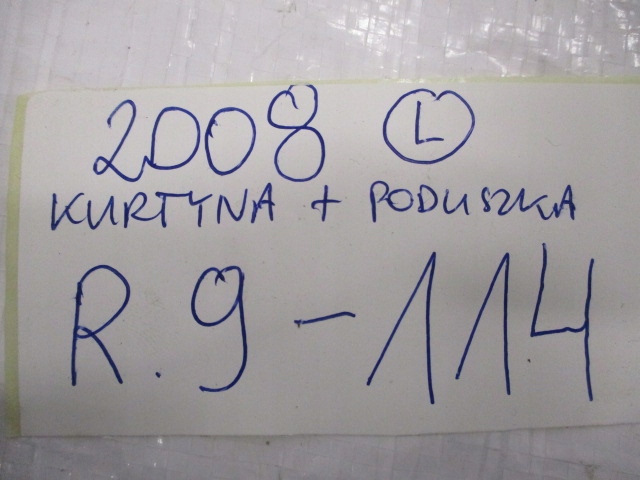 2008 L
KURTYNA + PODUSZKA
R.9-114